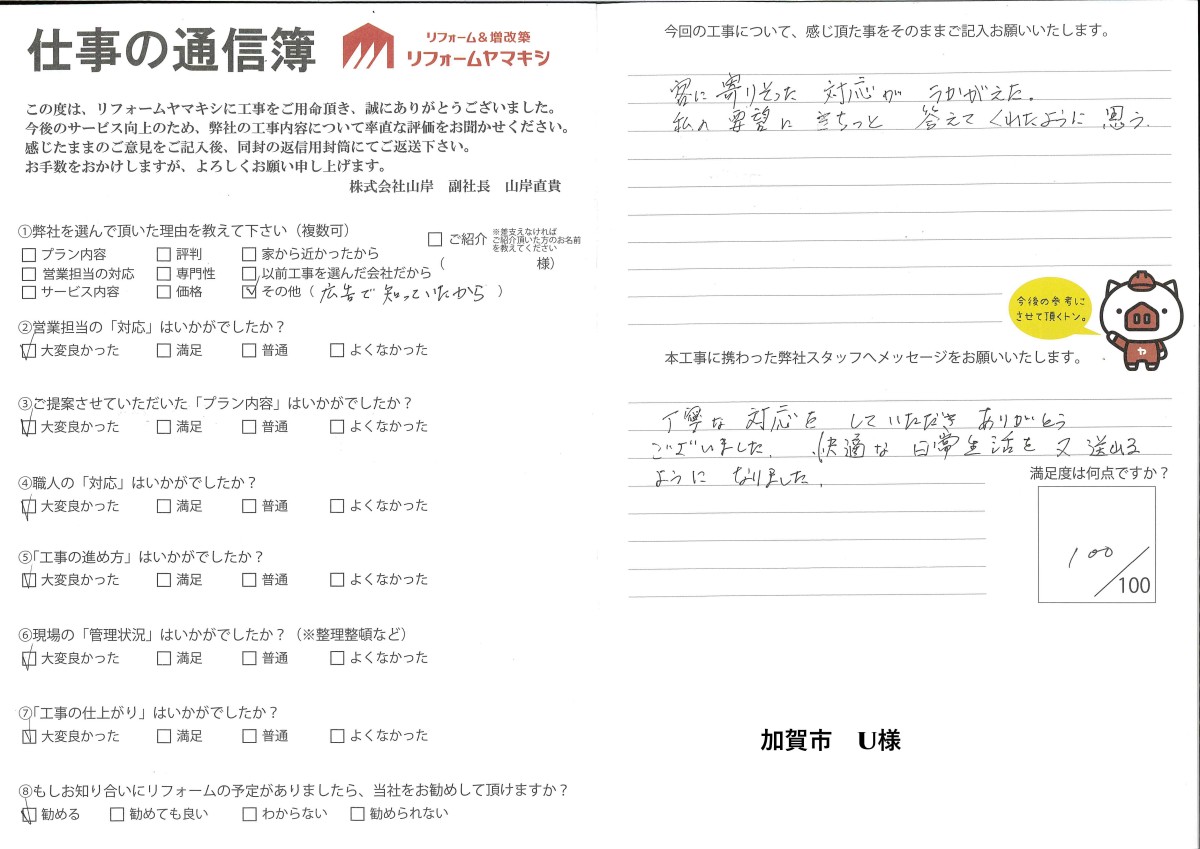 仕事の通信簿
リフォーム&増改築
リフォームヤマキシ
この度は、リフォームヤマキシに工事をご用命頂き、誠にありがとうございました。
今後のサービス向上のため、弊社の工事内容について率直な評価をお聞かせください。
感じたままのご意見をご記入後、同封の返信用封筒にてご返送下さい。
お手数をおかけしますが、よろしくお願い申し上げます。
株式会社山岸 副社長 山岸直貴
①弊社を選んで頂いた理由を教えて下さい（複数可）
□プラン内容 □評判 □家から近かったから
□営業担当の対応 □専門性 □以前工事を選んだ会社だから
□サービス内容 □価格 ☑その他（広告で知っていたから）
□ご紹介 ※差支えなければ
ご紹介頂いた方のお名前
を教えてください
（ 様）
②営業担当の「対応」はいかがでしたか？
☑大変良かった □満足 □普通 □よくなかった
③ご提案させていただいた「プラン内容」はいかがでしたか？
☑大変良かった □満足 □普通 □よくなかった
④職人の「対応」はいかがでしたか？
☑大変良かった □満足 □普通 □よくなかった
⑤「工事の進め方」はいかがでしたか？
☑大変良かった □満足 □普通 □よくなかった
⑥現場の「管理状況」はいかがでしたか？（※整理整頓など）
☑大変良かった □満足 □普通 □よくなかった
⑦「工事の仕上がり」はいかがでしたか？
☑大変良かった □満足 □普通 □よくなかった
⑧もしお知り合いにリフォームの予定がありましたら、当社をお勧めして頂けますか？
☑勧める □勧めても良い □わからない □勧められない
今回の工事について、感じ頂た事をそのままご記入お願いいたします。
客に寄りそった 対応が うかがえた。
私の要望に きちっと 答えてくれたように思う。
今後の参考に
させて頂くトン。
ヤ
本工事に携わった弊社スタッフへメッセージをお願いいたします。
丁寧な対応をしていただき ありがとう
ございました。快適な日常生活を又送れる
ように なりました。
満足度は何点ですか？
100/100
加賀市 U様